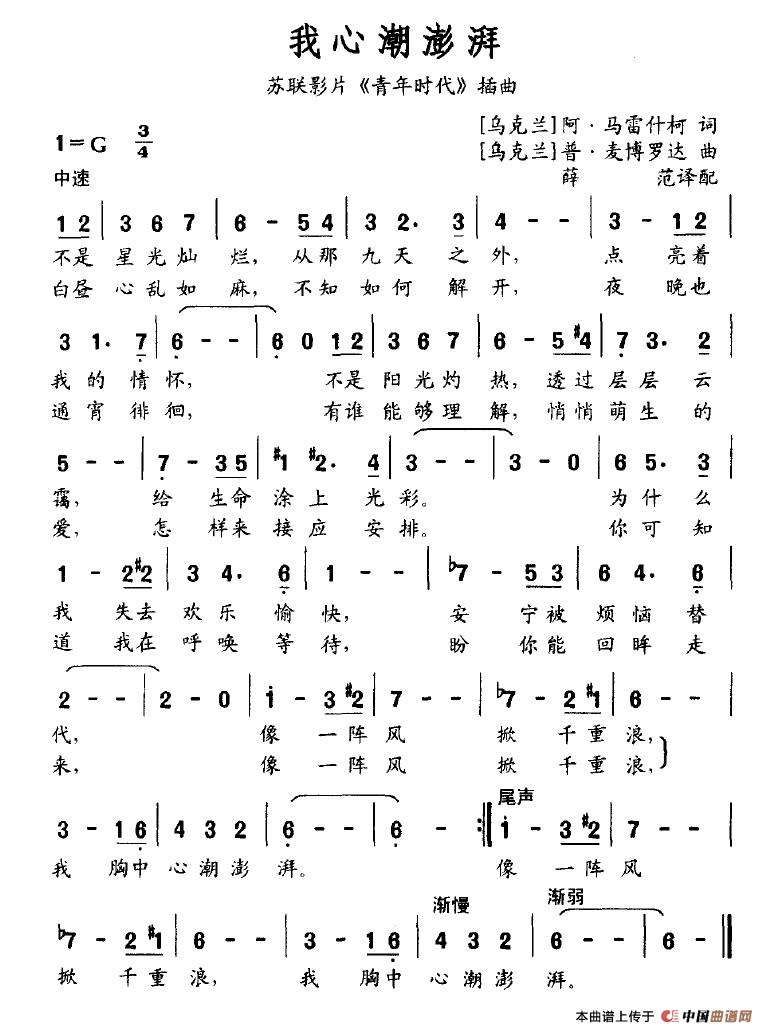 我心潮澎湃
苏联影片《青年时代》插曲
1=G 3/4
[乌克兰]阿·马雷什柯 词
[乌克兰]普·麦博罗达 曲
中速
薛 范译配
1 2 | 3 6 7 | 6 - 5 4 | 3 2. 3 | 4 - - | 3 - 1 2 |
不是 星光灿 烂, 从那 九天 之 外, 点 亮着
白昼 心乱如 麻, 不知 如何 解 开, 夜 晚也
3 1. 7 | 6 - - | 6 0 1 2 | 3 6 7 | 6 - 5 #4 | 7 3. 2 |
我的 情 怀, 不是 阳光灼 热, 透过 层层 云
通宵 徘 徊, 有谁 能够理 解, 悄悄 萌生 的
5 - - | 7 - 3 5 | #1 #2. 4 | 3 - - | 3 - 0 | 6 5. 3 |
霭, 给 生命 涂上 光 彩。 为什 么
爱, 怎 样来 接应 安 排。 你可 知
1 - 2 #2 | 3 4. 6 | 1 - - | b7 - 5 3 | 6 4. 6 |
我 失去 欢乐 愉 快, 安 宁被 烦恼 替
道 我在 呼唤 等 待, 盼 你能 回眸 走
2 - - | 2 - 0 | i - 3 #2 | 7 - - | b7 - 2 #1 | 6 - - |
代, 像 一阵 风 掀 千重 浪,
来, 像 一阵 风 掀 千重 浪,
尾声
3 - 1 6 | 4 3 2 | 6 - - | 6 - :‖ i - 3 #2 | 7 - - |
我 胸中 心潮澎 湃。 像 一阵 风
渐慢 渐弱
b7 - 2 #1 | 6 - - | 3 - 1 6 | 4 3 2 | 6 - - | 6 - ‖
掀 千重 浪, 我 胸中 心潮澎 湃。
本曲谱上传于 中国曲谱网